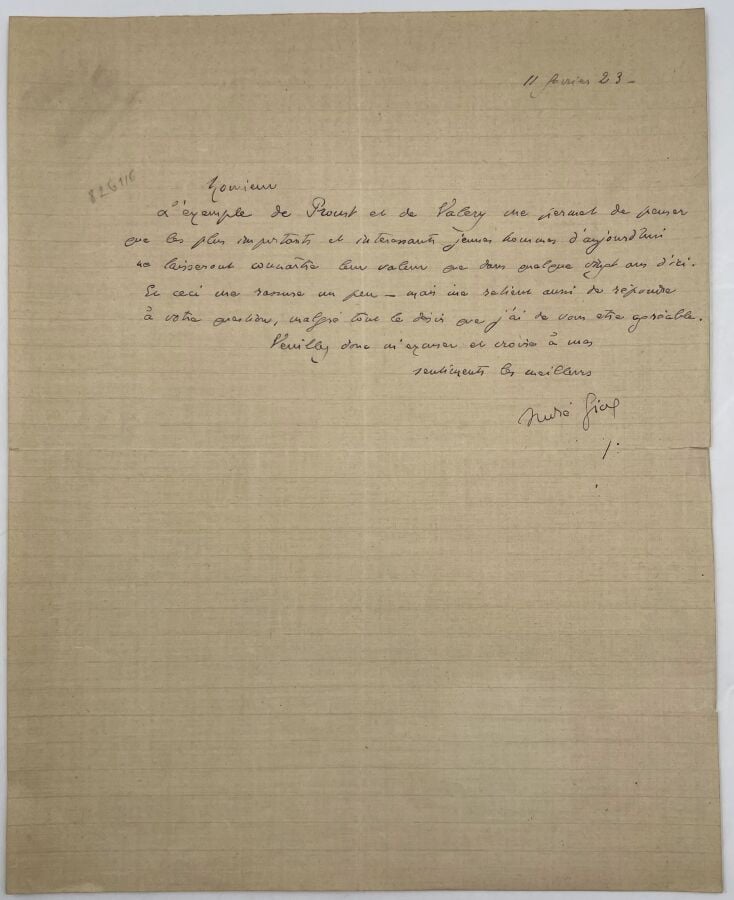 11 février 23 -
82616
Monsieur
L'exemple de Proust et de Valery me permet de penser
que les plus importants et interessants jeunes hommes d'aujourd'hui
ne laisseront connaître leur valeur que dans quelque vingt ans d'ici.
Et ceci me rassure un peu - mais me retient aussi de répondre
à votre question, malgré tout le désir que j'ai de vous etre agréable.
Veuillez donc m'excuser et croire à mes
sentiments les meilleurs
André Gide